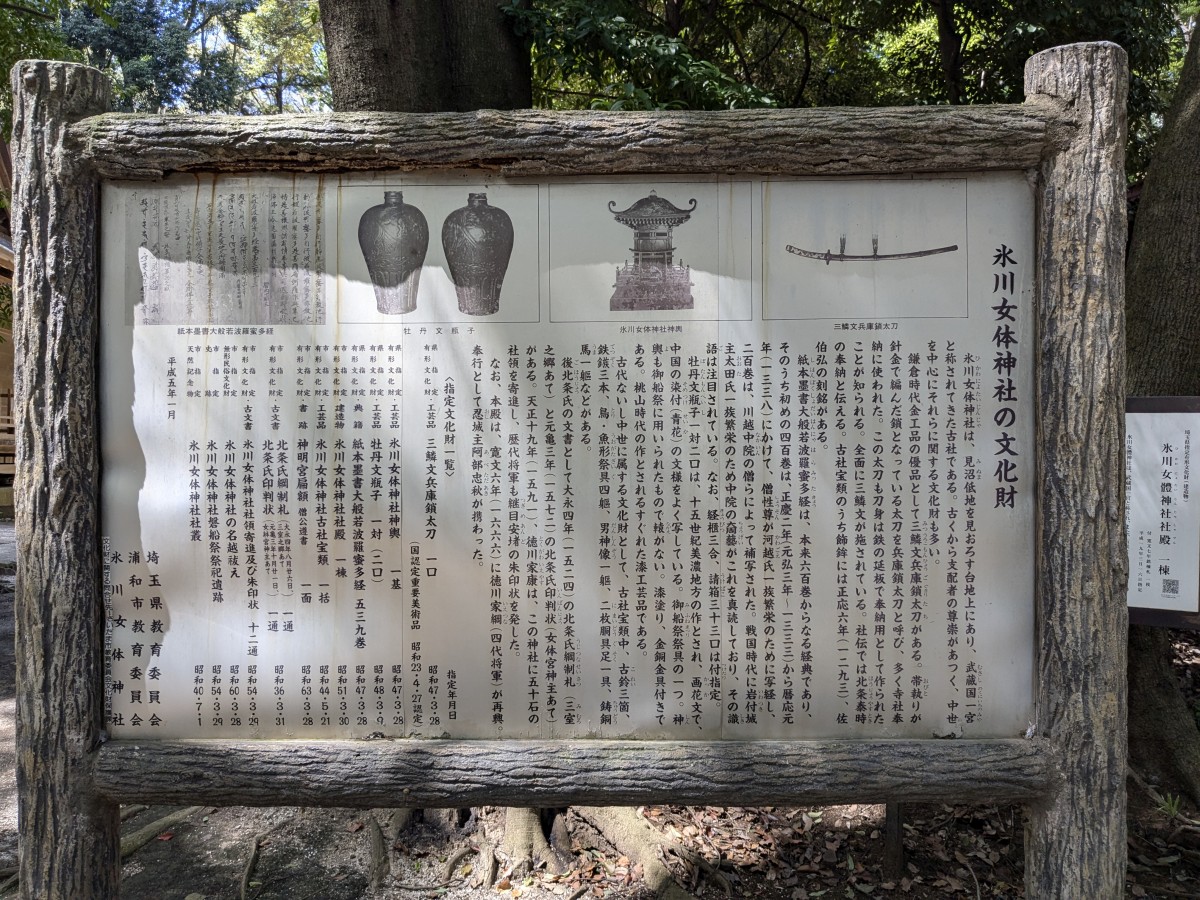 氷川女体神社の文化財
三鱗文兵庫鎖太刀
氷川女体神社神輿
牡丹文瓶子
紙本墨書大般若波羅蜜多経
氷川女体神社は、見沼低地を見おろす台地上にあり、武蔵国一宮
と称されてきた古社である。古くから支配者の尊崇があつく、中世
を中心にそれらに関する文化財も多い。
鎌倉時代金工品の優品として三鱗文兵庫鎖太刀がある。帯執りが
針金で編んだ鎖となっている太刀を兵庫鎖太刀と呼び、多く寺社奉
納に使われた。この太刀も刀身は鉄の延板で奉納用として作られた
ことが知られる。全面に三鱗文が施されている。社伝では北条泰時
の奉納と伝える。古社宝類のうち飾鉾には正応六年(一二九三)、佐
伯弘の刻銘がある。
紙本墨書大般若波羅蜜多経は、本来六百巻からなる経典であり、
そのうち初めの四百巻は、正慶二年元弘三年～一三三三)から暦応元
年(一三三八)にかけて、僧性尊が河越氏一族繁栄のために写経し、
二百巻は、川越中院の僧らによって補写された。戦国時代に岩付城
主太田氏一族繁栄のため中院の奝藝がこれを真読しており、その識
語は注目されている。なお、経櫃三合、請箱三十三口は付指定。
牡丹文瓶子一対二口は、十五世紀美濃地方の作とされ、画花文で、
中国の染付(青花)の文様をよく写している。御船祭祭具の一つ。神
輿も御船祭に用いられたもので轅がない。漆塗り、金銅金具付きで
ある。桃山時代の作とされるすぐれた漆工芸品である。
古代ないし中世に属する文化財として、古社宝類中、古鈴三箇、
鉄鏃三本、鳥・魚形祭具四躯、男神像一躯、二枚胴具足一具、鋳銅
馬一躯などがある。
後北条氏の文書として大永四年(一五二四)の北条氏綱制札(三室
之郷あて)と元亀三年(一五七二)の北条氏印判状(女体宮神主あて)
がある。天正十九年(一五九一)、徳川家康は、この神社に五十石の
社領を寄進し、歴代将軍も継目安堵の朱印状を発した。
なお、本殿は、寛文六年(一六六六)に徳川家綱(四代将軍)が再興。
奉行として忍城主阿部忠秋が携わった。
〈指定文化財一覧〉 指定年月日
県指定有形文化財 工芸品 三鱗文兵庫鎖太刀 一口 昭和47・3・28
(国認定重要美術品 昭和23・4・27認定)
県指定有形文化財 工芸品 氷川女体神社神輿 一基 昭和47・3・28
県指定有形文化財 工芸品 牡丹文瓶子 一対(二口) 昭和48・3・9
県指定有形文化財 典籍 紙本墨書大般若波羅蜜多経 五三九巻 昭和47・3・28
県指定有形文化財 建造物 氷川女体神社社殿 一棟 昭和51・3・30
市指定有形文化財 工芸品 氷川女体神社古社宝類 一括 昭和44・5・21
市指定有形文化財 書跡 神明宮扁額 僧公道書 一面 昭和63・3・28
市指定有形文化財 古文書 北条氏綱制札(大永四年八月廿六日)(三室之郷あて) 一通 昭和36・3・31
北条氏印判状(元亀三年十月廿一日)(女躰宮神主あて) 一通
市指定有形文化財 古文書 氷川女体神社社領寄進及び朱印状 十二通 昭和54・3・29
市指定無形民俗文化財 氷川女体神社の名越祓え 昭和60・3・29
市指定史跡 氷川女体神社磐船祭祭祀遺跡 昭和54・3・29
市指定天然記念物 氷川女体神社社叢 昭和40・7・1
平成五年一月
埼玉県教育委員会
浦和市教育委員会
氷川女体神社
氷川女體神社社殿 一棟